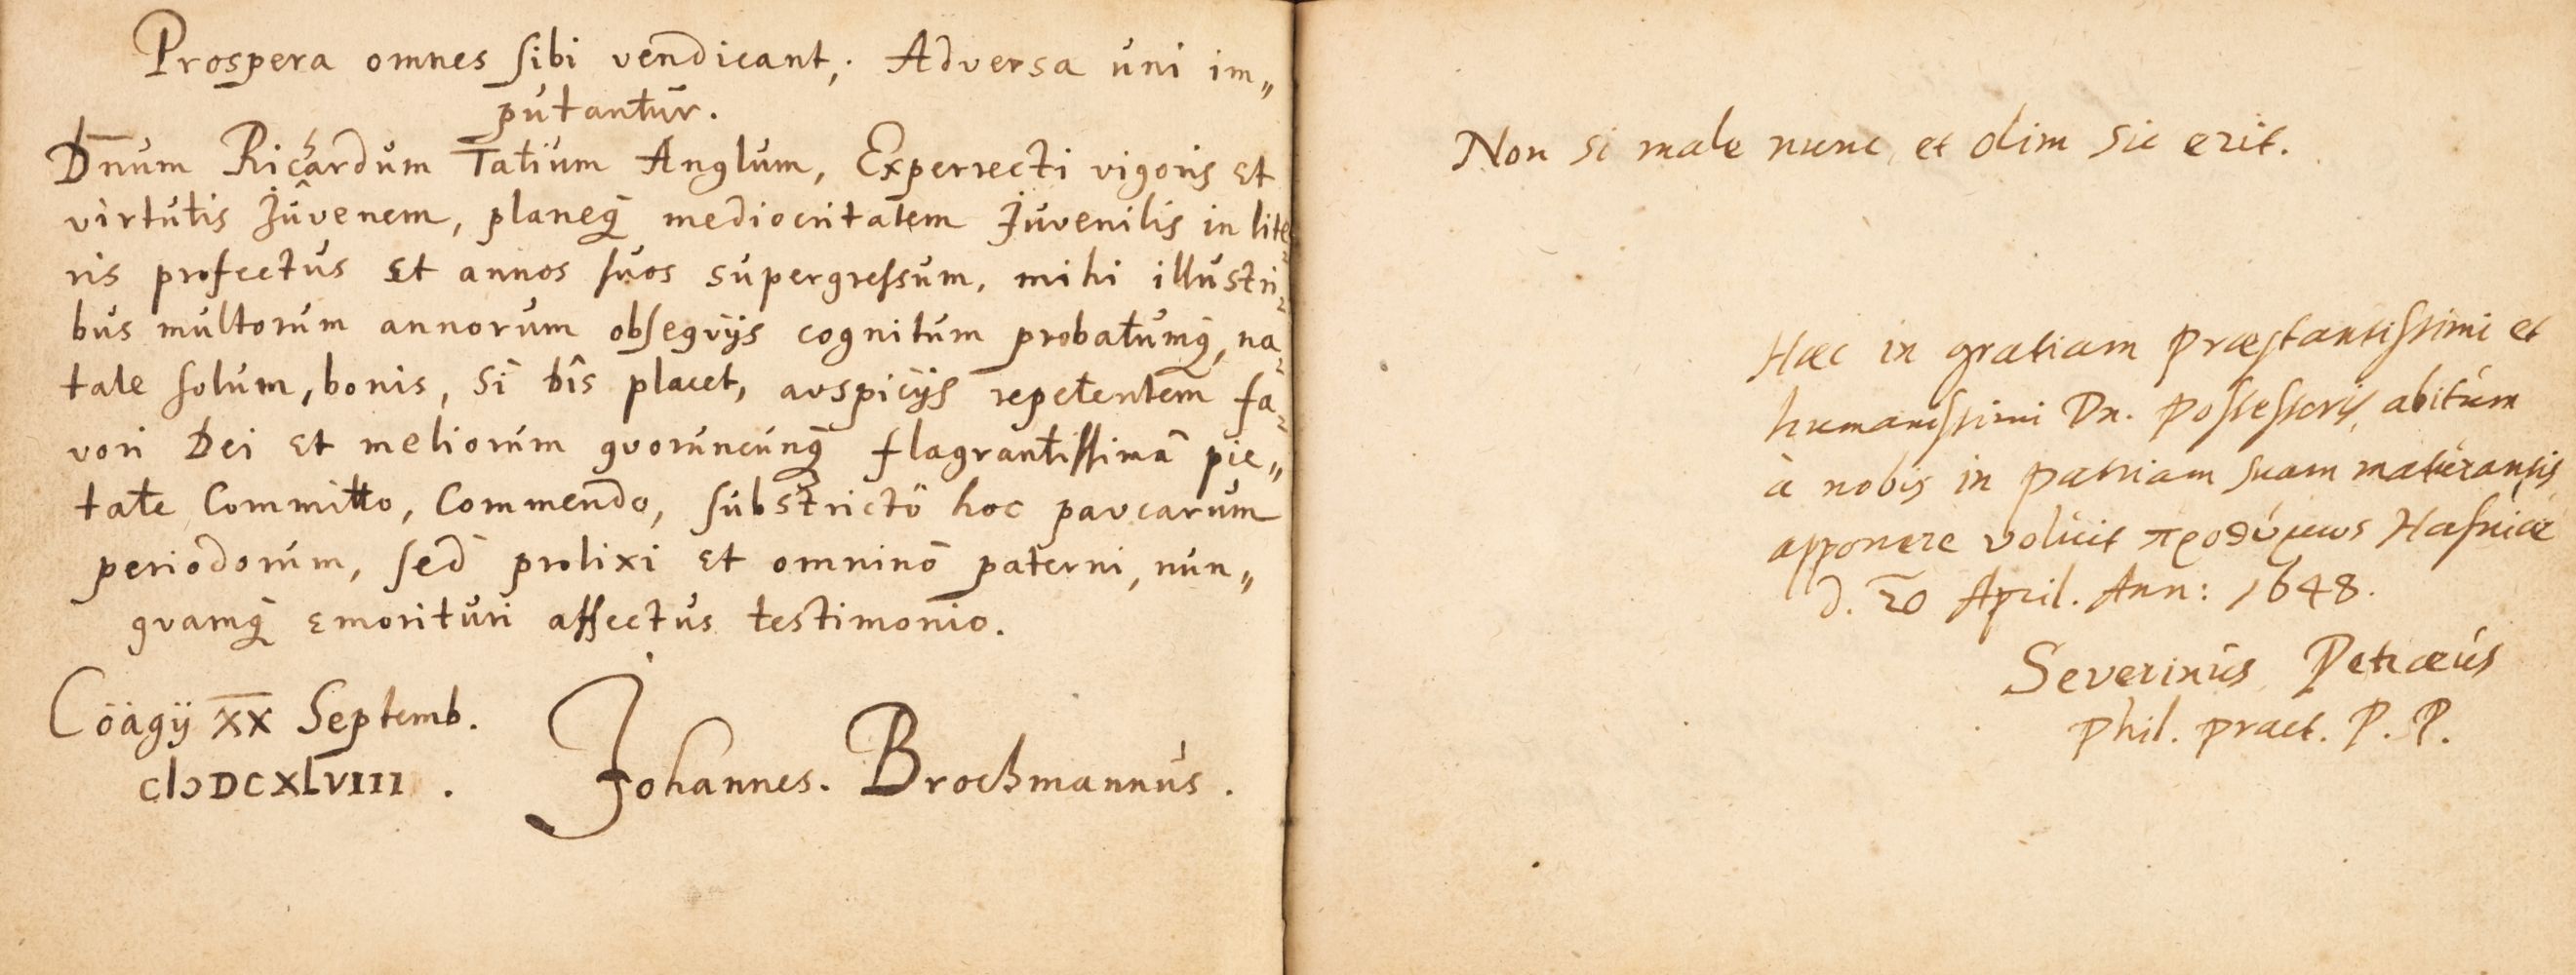 Prospera omnes sibi vendicant; Adversa uni im„
putantur.
Dn̄um Richardum Tatium Anglum, Experrecti vigoris et
virtutis Juvenem, planeq̃ mediocritatem Juvenilis in lite„
ris profectus et annos suos supergressum, mihi illustri„
bus multorum annorum obseqvijs cognitum probatumq̃, na„
tale solum, bonis, si dîs placet, auspicijs repetentem fa„
vori Dei et meliorum qvoruncunq̃ flagrantissimâ pie„
tate Committo, Commendo, substricto hoc paucarum
periodorum, sed prolixi et omninò paterni, nun„
qvamq̃ emorituri affectus testimonio.
Cöagij XX Septemb.
CIↃDCXLVIII.
Johannes. Brochmannus.
Non si male nunc, et olim sic erit.
Hæc in gratiam Præstantissimi et
humanissimi Dn. Possessoris, abitum
à nobis in patriam suam maturantis,
apponere voluit προθύμως Hafniæ
d. 20 April. Ann: 1648.
Severinus Petræus
Phil. pract. P. P.